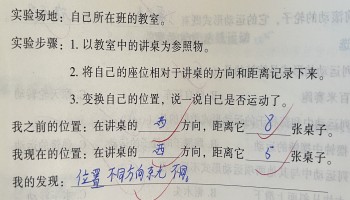 实验场地：自己所在班的教室。
实验步骤：1. 以教室中的讲桌为参照物。
2. 将自己的座位相对于讲桌的方向和距离记录下来。
3. 变换自己的位置，说一说自己是否运动了。
我之前的位置：在讲桌的西方向，距离它8张桌子。
我现在的位置：在讲桌的西方向，距离它5张桌子。
我的发现：位置不同方向就不同